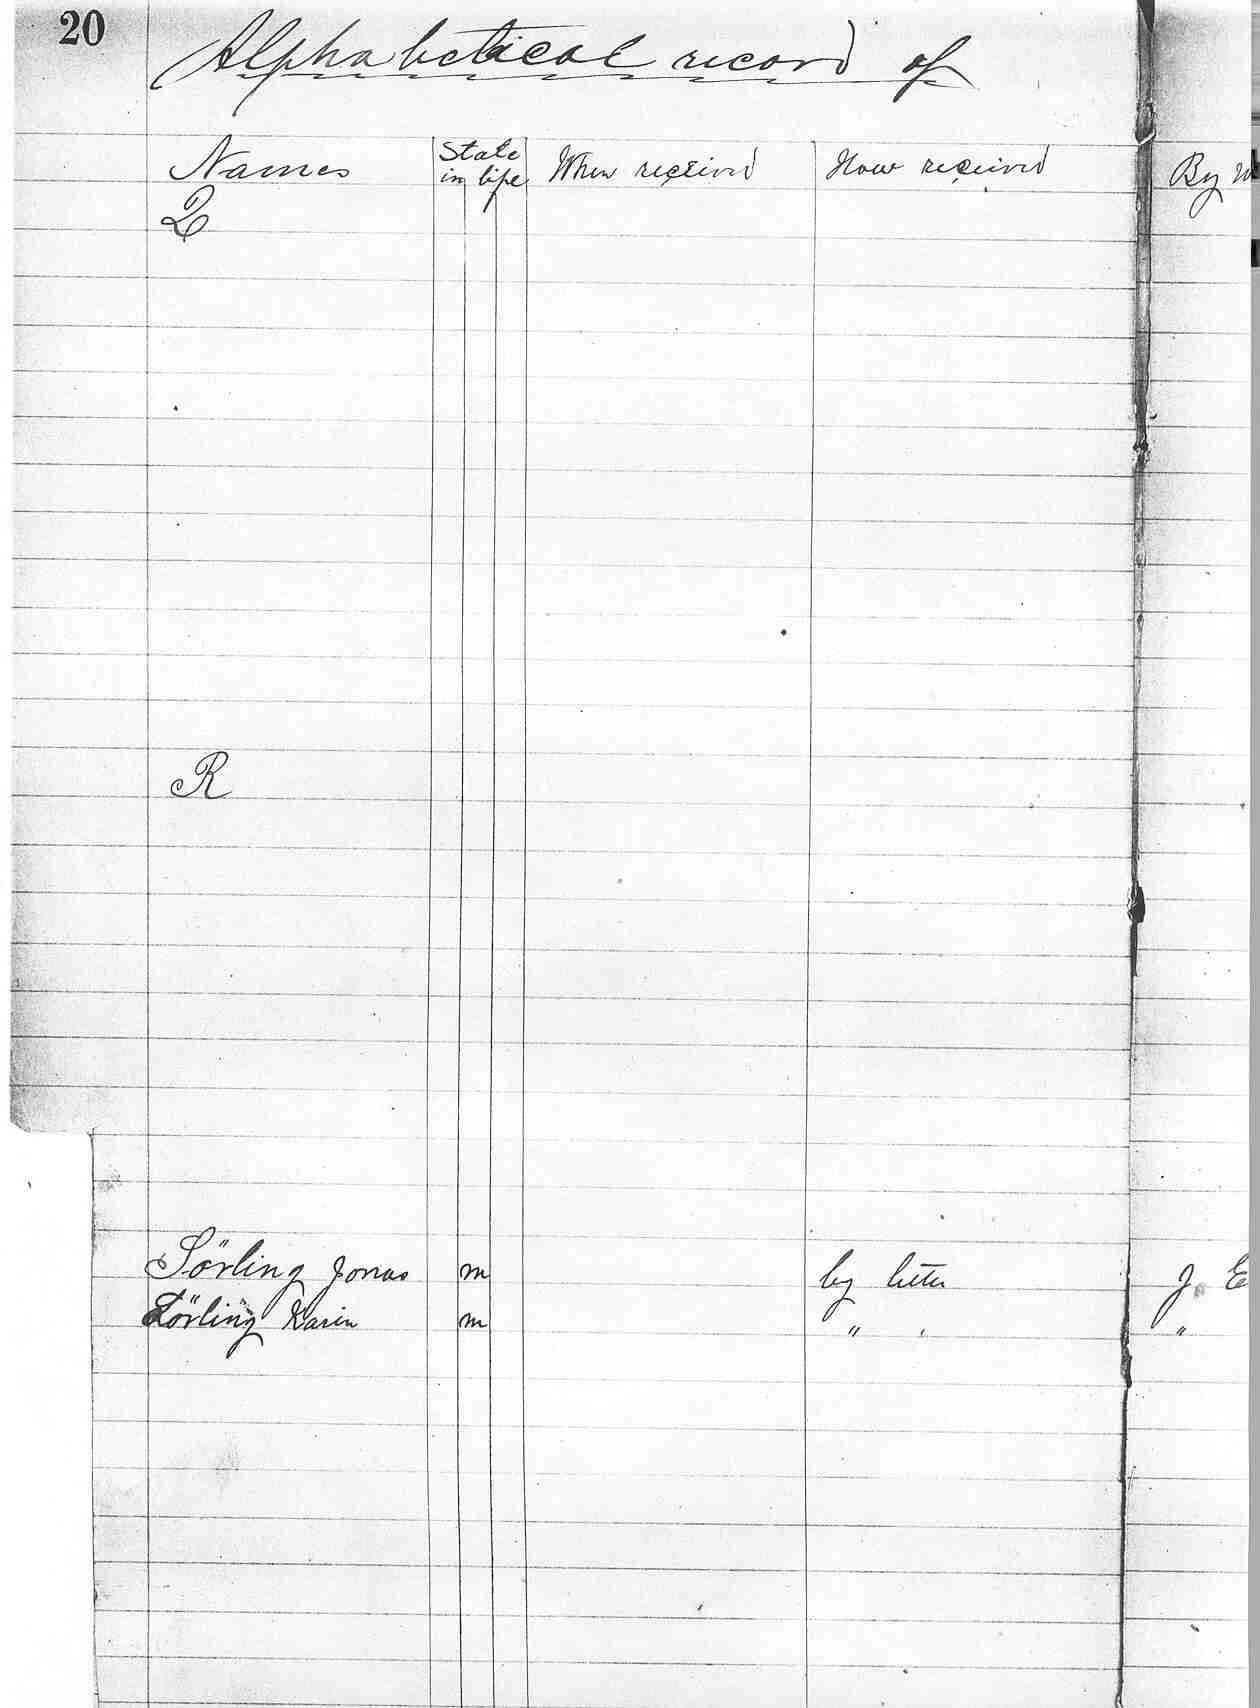 20
Alphabetical record of
Names State in life When received How received By
Q
R
Sörling Jonas m by letter J. E
Sörling Karin m " " "